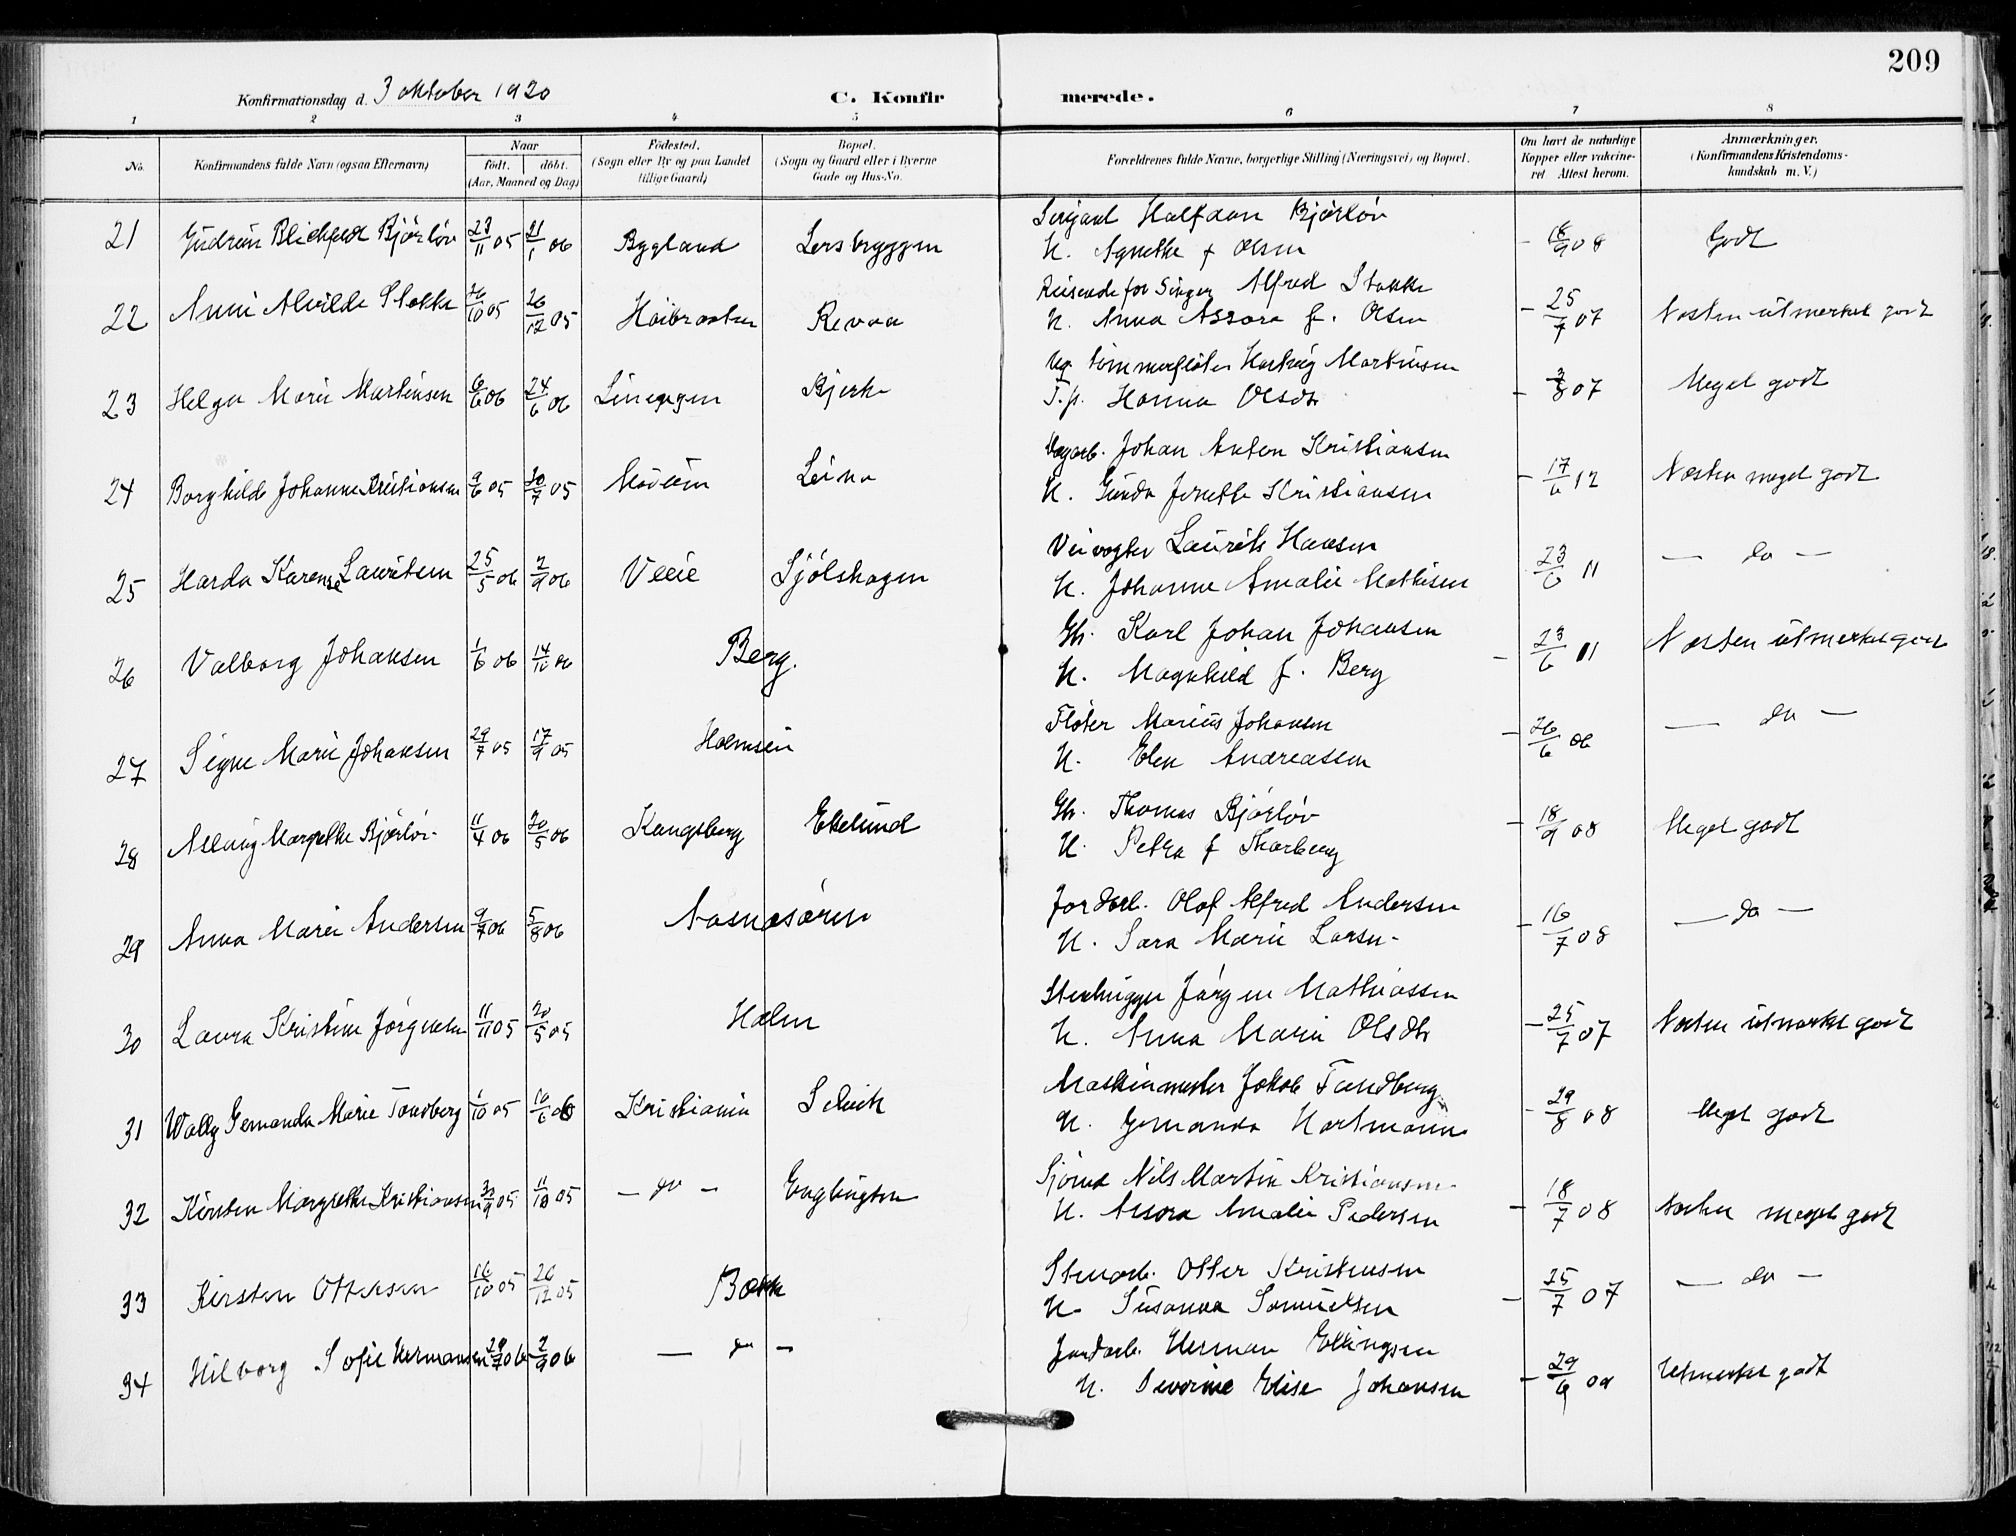 209
Konfirmationsdag d. 3 oktober 1920 C. Konfirmerede.
1 2 3 4 5 6 7 8
No. Konfirmandens fulde Navn (ogsaa Efternavn) Naar født. døbt. (Aar, Maaned og Dag) Fødested. (Sogn eller By og paa Landet tillige Gaard) Bopæl. (Sogn og Gaard eller i Byerne Gade og Hus-No. Forældrenes fulde Navne, borgerlige Stilling (Næringsvei) og Bopæl. Om havt de naturlige Kopper eller vakcineret Attest herom. Anmærkninger. (Konfirmandens Kristendomskundskab m. V.)
21 Gudrun Blichfeldt Bjørløv 23/11 05 21/1 06 Bygland Lersbryggen Serjant Halfdan Bjørløv
H. Agnethe f Olsen - 18/9 08 Godt
22 Anni Alvilde Stokke 26/10 05 26/12 05 Høibraaten Revaa Reisende for Singer Alfred Stokke
H. Anna Assora f. Olsen - 25/7 07 Næsten utmerket godt
23 Helga Marie Martinsen 6/6 06 24/6 06 Bjerke Ug. tømmerfløter Hartvig Martinsen
T.p. Hanna Olsdtr - 3/8 07 Meget godt
24 Borghilde Johanne Kristiansen 9/6 05 30/7 05 Modum Leira Dagarb. Johan Anton Kristiansen
H. Gunda Jenette Kristiansen - 17/6 12 Næsten meget godt
25 Harda Karense Lauritsen 25/5 06 2/9 06 Veeie Sjølshagen Veivogter Laurits Hansen
H. Johanne Amalie Mathisen 23/6 11 — do —
26 Valborg Johansen 1/6 06 14/10 06 Berg. Gb. Karl Johan Johansen
H. Magnhild f. Berg - 23/6 11 Næsten utmerket godt
27 Signe Marie Johansen 29/7 05 17/9 05 Holmsen Fløter Marius Johansen
H. Elen Andreassen - 26/6 06 — do —
28 Aslaug Margrethe Bjørløv 11/4 06 20/5 06 Kongsberg Ekelund Gb. Thomas Bjørløv
H. Petra f Thorberg - 18/9 08 Meget godt
29 Anna Marie Andersen 9/7 06 5/8 06 Aasnæsøren Jordarb. Olaf Alfred Andersen
H. Sara Marie Larsen - 16/7 08 — do —
30 Laura Kristine Jørgensen 11/11 05 20/5 05 Holm Stenhugger Jørgen Mathiassen
H. Anna Marie Olsdtr - 25/7 07 Næsten utmerket godt
31 Wally Gemanda Marie Tandberg 1/10 05 10/6 06 Kristiania Selvik Maskinmester Jakob Tandberg
H. Gemanda Hartmann - 29/8 08 Meget godt
32 Kirsten Margrethe Kristiansen 11/10 05 — do — Engbugten Sjømd Nils Martin Kristiansen
H. Assora Amalie Pedersen - 18/7 08 Næsten meget godt
33 Kirsten Ottersen 16/10 05 26/12 05 Bakke Stenarb. Otter Kristensen
H. Susanna Samuelsen - 25/7 07 — do —
34 Hilborg Sofie Hermansen 29/7 06 2/9 06 — do — Jordarb. Herman Ellingsen
H. Severine Elise Johansen - 29/6 09 Utmerket godt